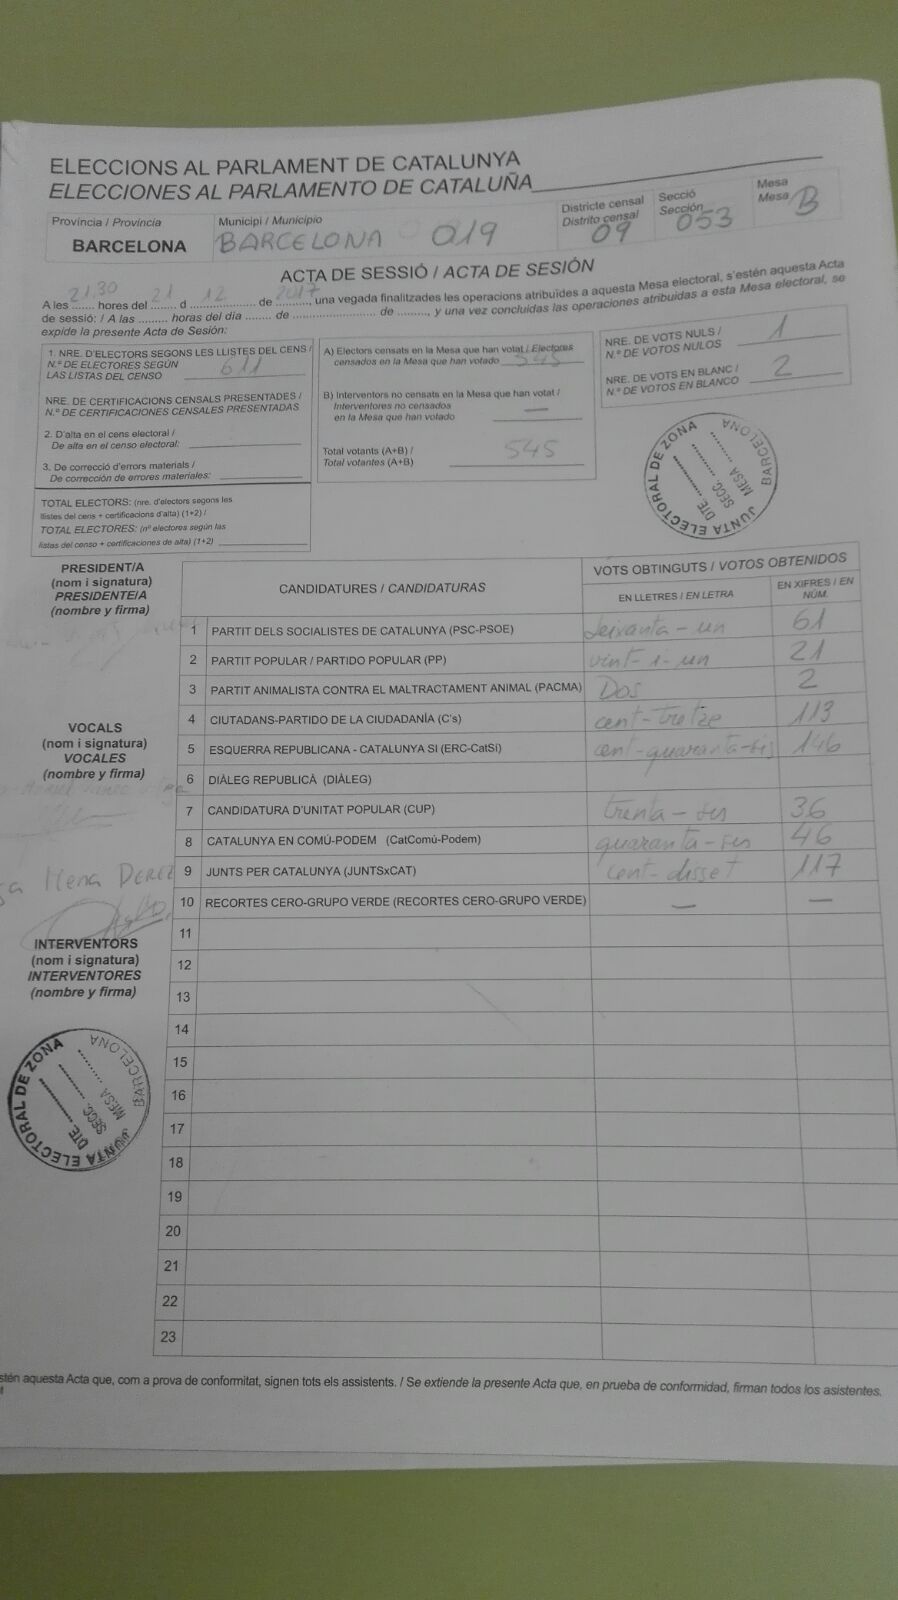 ELECCIONS AL PARLAMENT DE CATALUNYA
ELECCIONES AL PARLAMENTO DE CATALUÑA
Província / Provincia
BARCELONA
Municipi / Municipio
BARCELONA 019
Districte censal
Distrito censal
09
Secció
Sección
053
Mesa
Mesa
B
ACTA DE SESSIÓ / ACTA DE SESIÓN
A les 21.30 hores del 21 d 12 de 2017, una vegada finalitzades les operacions atribuïdes a aquesta Mesa electoral, s'estén aquesta Acta
de sessió: / A las ......... horas del día ........ de ........................ de ........., y una vez concluidas las operaciones atribuidas a esta Mesa electoral, se
expide la presente Acta de Sesión:
1. NRE. D'ELECTORS SEGONS LES LLISTES DEL CENS /
N.º DE ELECTORES SEGÚN
LAS LISTAS DEL CENSO 611
NRE. DE CERTIFICACIONS CENSALS PRESENTADES /
N.º DE CERTIFICACIONES CENSALES PRESENTADAS
2. D'alta en el cens electoral /
De alta en el censo electoral:
3. De correcció d'errors materials /
De corrección de errores materiales:
TOTAL ELECTORS: (nre. d'electors segons les
llistes del cens + certificacions d'alta) (1+2) /
TOTAL ELECTORES: (nº electores según las
listas del censo + certificaciones de alta) (1+2)
A) Electors censats en la Mesa que han votat / Electores
censados en la Mesa que han votado 545
B) Interventors no censats en la Mesa que han votat /
Interventores no censados
en la Mesa que han votado —
Total votants (A+B) /
Total votantes (A+B) 545
NRE. DE VOTS NULS /
N.º DE VOTOS NULOS 1
NRE. DE VOTS EN BLANC /
N.º DE VOTOS EN BLANCO 2
JUNTA ELECTORAL DE ZONA
BARCELONA
DTE.
SECC.
MESA
PRESIDENT/A
(nom i signatura)
PRESIDENTE/A
(nombre y firma)
CANDIDATURES / CANDIDATURAS
VOTS OBTINGUTS / VOTOS OBTENIDOS
EN LLETRES / EN LETRA
EN XIFRES / EN NÚM.
1 PARTIT DELS SOCIALISTES DE CATALUNYA (PSC-PSOE) Seixanta-un 61
2 PARTIT POPULAR / PARTIDO POPULAR (PP) vint-i-un 21
3 PARTIT ANIMALISTA CONTRA EL MALTRACTAMENT ANIMAL (PACMA) Dos 2
4 CIUTADANS-PARTIDO DE LA CIUDADANÍA (C's) cent-tretze 113
5 ESQUERRA REPUBLICANA - CATALUNYA SI (ERC-CatSí) cent-quaranta-sis 146
6 DIÀLEG REPUBLICÀ (DIÀLEG)
7 CANDIDATURA D'UNITAT POPULAR (CUP) trenta-sis 36
8 CATALUNYA EN COMÚ-PODEM (CatComú-Podem) quaranta-sis 46
9 JUNTS PER CATALUNYA (JUNTSxCAT) cent-disset 117
10 RECORTES CERO-GRUPO VERDE (RECORTES CERO-GRUPO VERDE) — —
11
12
13
14
15
16
17
18
19
20
21
22
23
VOCALS
(nom i signatura)
VOCALES
(nombre y firma)
Mena
INTERVENTORS
(nom i signatura)
INTERVENTORES
(nombre y firma)
JUNTA ELECTORAL DE ZONA
BARCELONA
DTE.
SECC.
MESA
estén aquesta Acta que, com a prova de conformitat, signen tots els assistents. / Se extiende la presente Acta que, en prueba de conformidad, firman todos los asistentes.